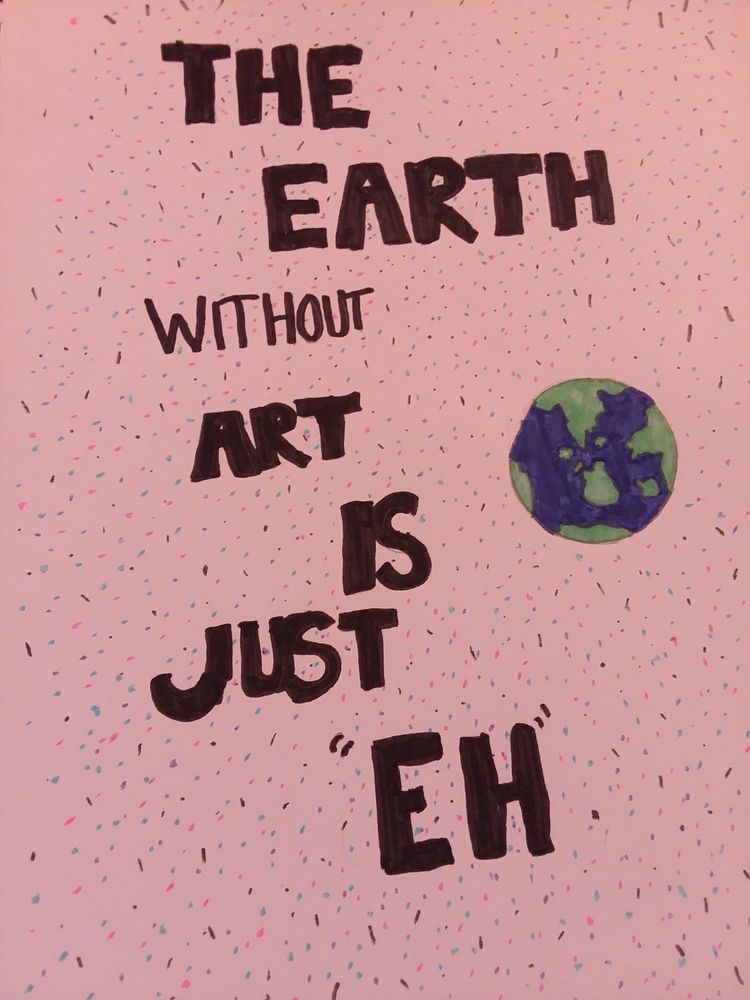 THE
EARTH
WITHOUT
ART
IS
JUST
"EH"